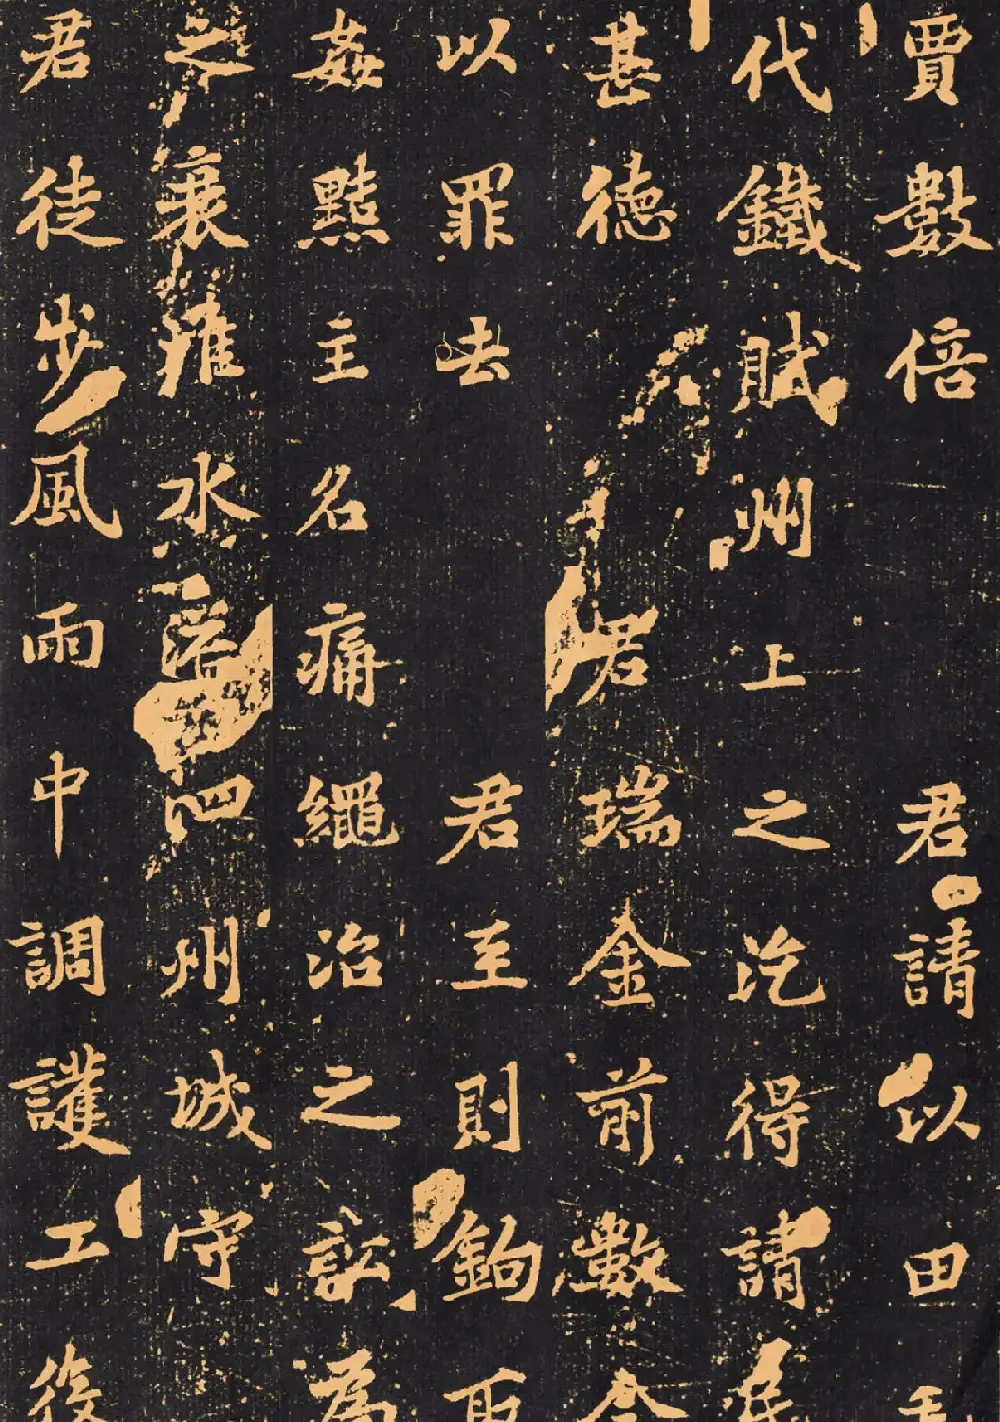 賈數倍君請以田
代鐵賦州上之訖得請民
甚德君瑞金前數令
以罪去君至則鉤
姦黠主名痛繩治之訟為
之衰淮水泛四州城守
君徒步風雨中調護工役